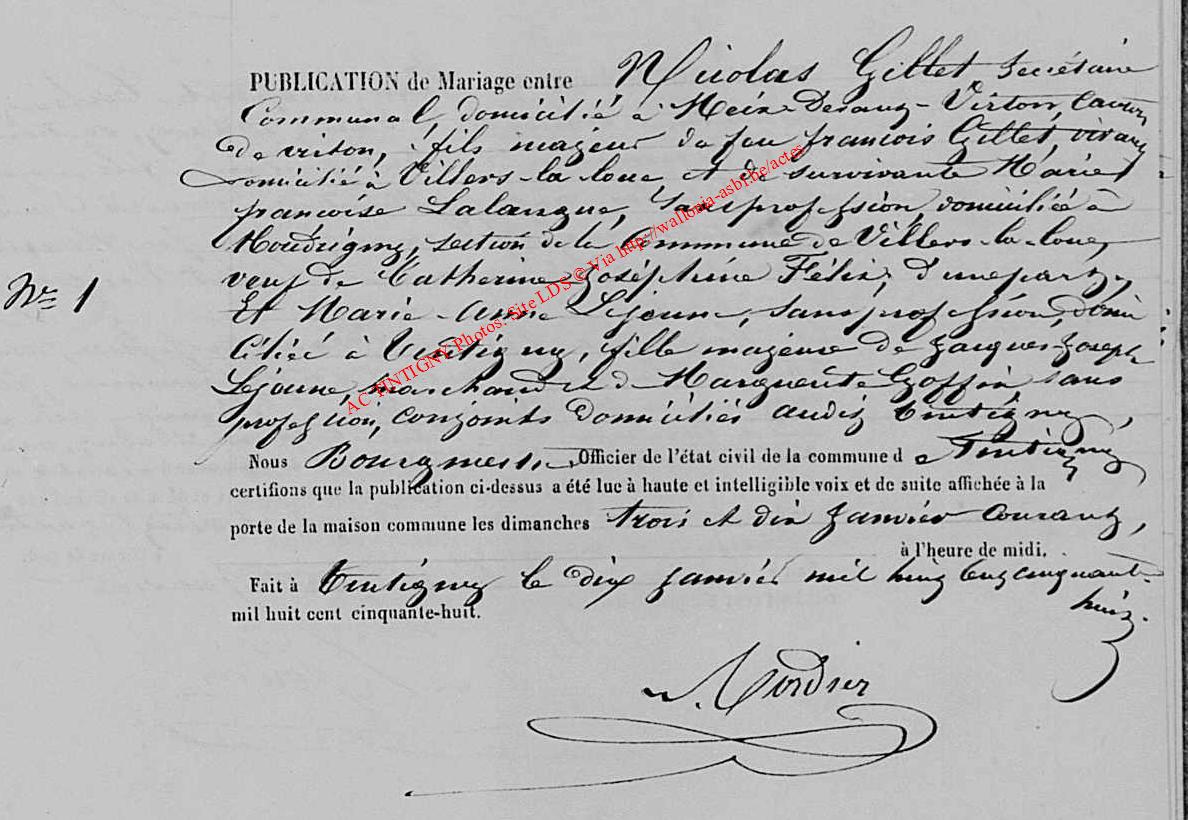 PUBLICATION de Mariage entre Nicolas Gillet, Secrétaire
Communal domicilié à Meix-Devant-Virton, Canton
de virton, fils majeur de feu françois Gillet, vivant
domicilié à Villers-la-loue, et de survivante Marie
françoise Lalangue, sans profession, domiciliée à
Houdrigny, section de la Commune de Villers-la-loue,
veuf de Catherine Joséphine Félix, d'une part,
N° 1
Et Marie-Anne Lejeune, sans profession, domi
ciliée à Tintigny, fille majeure de Jacques Joseph
Lejeune, marchand et de Marguerite Goffin sans
profession, conjoints domiciliés audit Tintigny,
Nous Bourgmestre Officier de l'état civil de la commune de Tintigny
certifions que la publication ci-dessus a été lue à haute et intelligible voix et de suite affichée à la
porte de la maison commune les dimanches trois et dix Janvier courant,
à l'heure de midi.
Fait à Tintigny le dix janvier mil huit cent cinquante
huit.
mil huit cent cinquante-huit.
AC TINTIGNY Photos: Site LDS © Via http://wallonia-asbl.be/actes